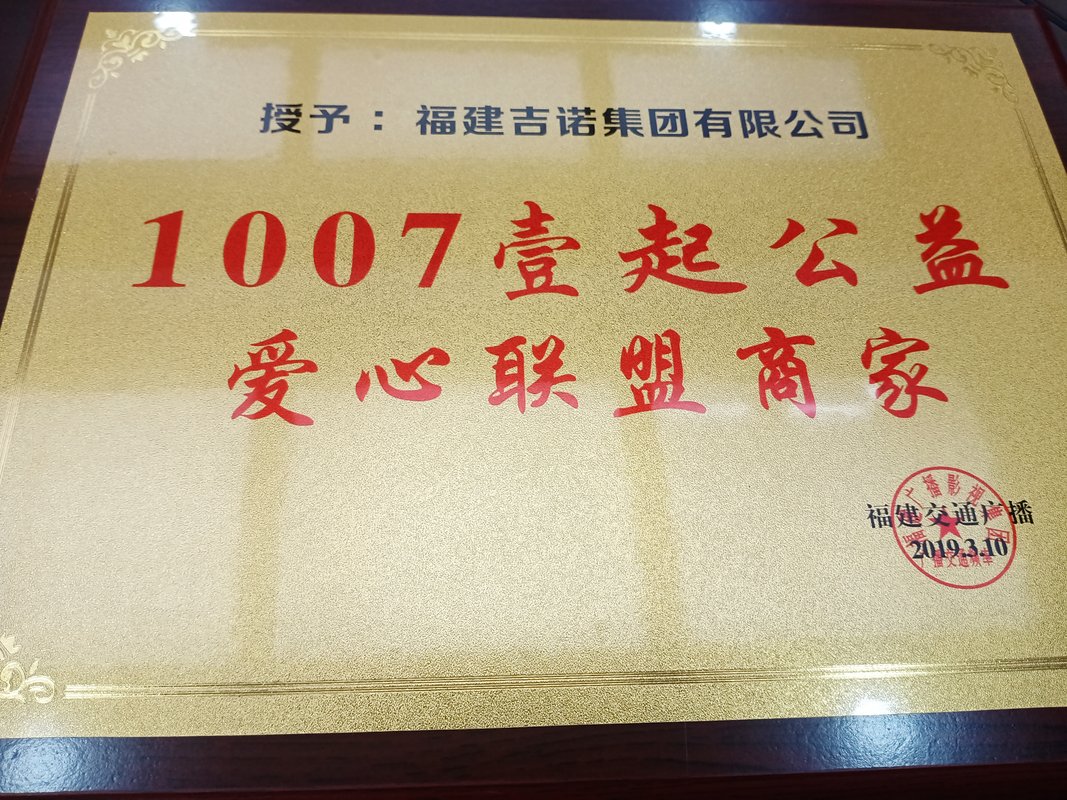 授予：福建吉诺集团有限公司
1007壹起公益
爱心联盟商家
福建交通广播
2019.3.10